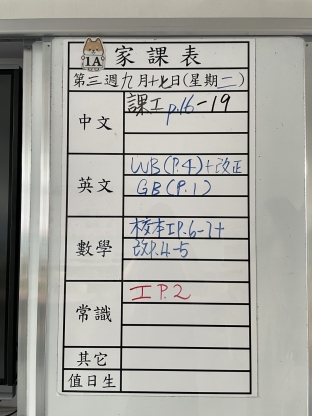 1A 家課表
第三週九月十七日(星期二)
中文
課工p.16-19
英文
WB(P.4)+改正
GB(P.1)
數學
校本工P.6-7+
改P.4-5
常識
工P.2
其它
值日生